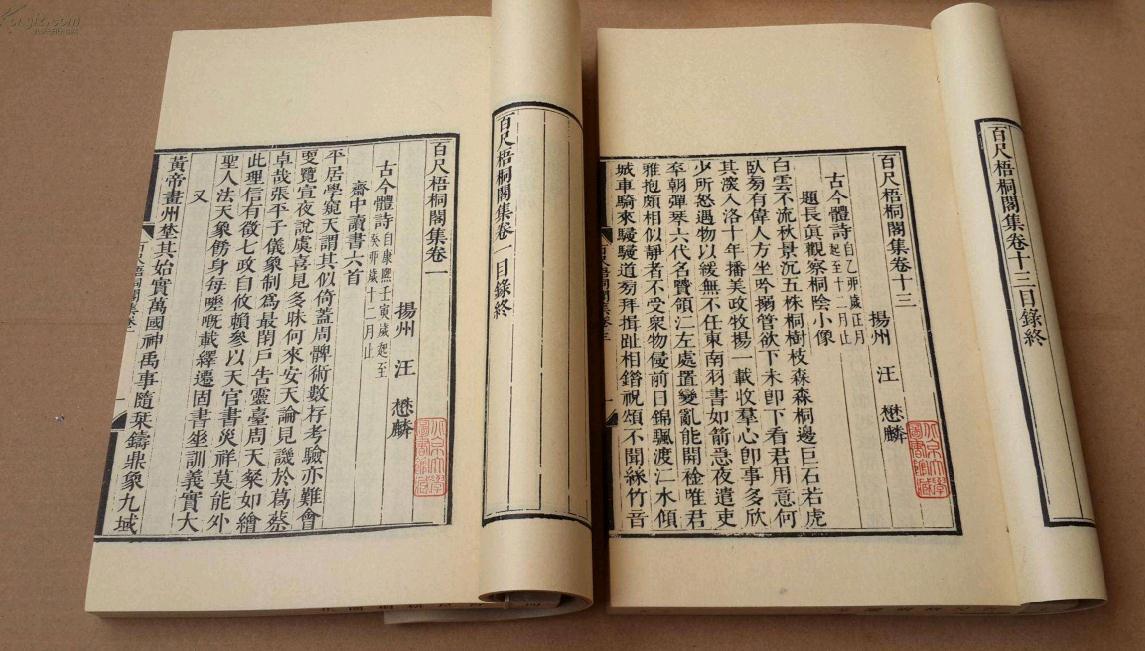 百尺梧桐閣集卷一目錄終
百尺梧桐閣集卷一
揚州 汪 懋麟
古今體詩 自康熙壬寅歲起至癸卯歲十二月止
齋中讀書六首
平居學窺天謂其似倚蓋周髀術數存考驗亦難會
更覽宣夜說虞喜見多昧何來安天論見譏於葛蔡
卓哉張平子儀象制為最閉戶告靈臺周天粲如繪
此理信有徵七政自攸賴參以天官書災祥莫能外
聖人法天象傍身每嘅載繹遷固書坐訓義實大
又
黃帝畫州埜其始實萬國神禹事隨栞鑄鼎象九域
百尺梧桐閣集卷十三目錄終
百尺梧桐閣集卷十三
揚州 汪 懋麟
古今體詩 自乙卯歲正月起至十二月止
題長真觀察桐陰小像
白雲不流秋景沉五株桐樹枝森森桐邊巨石若虎
臥旁有偉人方坐吟弱管欲下未即下看君用意何
其深入洛十年播美政牧揚一載收羣心即事多欣
少所怒遇物以緩無不任東南羽書如箭急夜遣吏
卒朝彈琴六代名賢領江左處置變亂能開襟唯君
雅抱頗相似靜者不受衆物侵前日錦颿渡江水傾
城車騎來駸駸道旁拜揖趾相錯祝頌不聞絲竹音